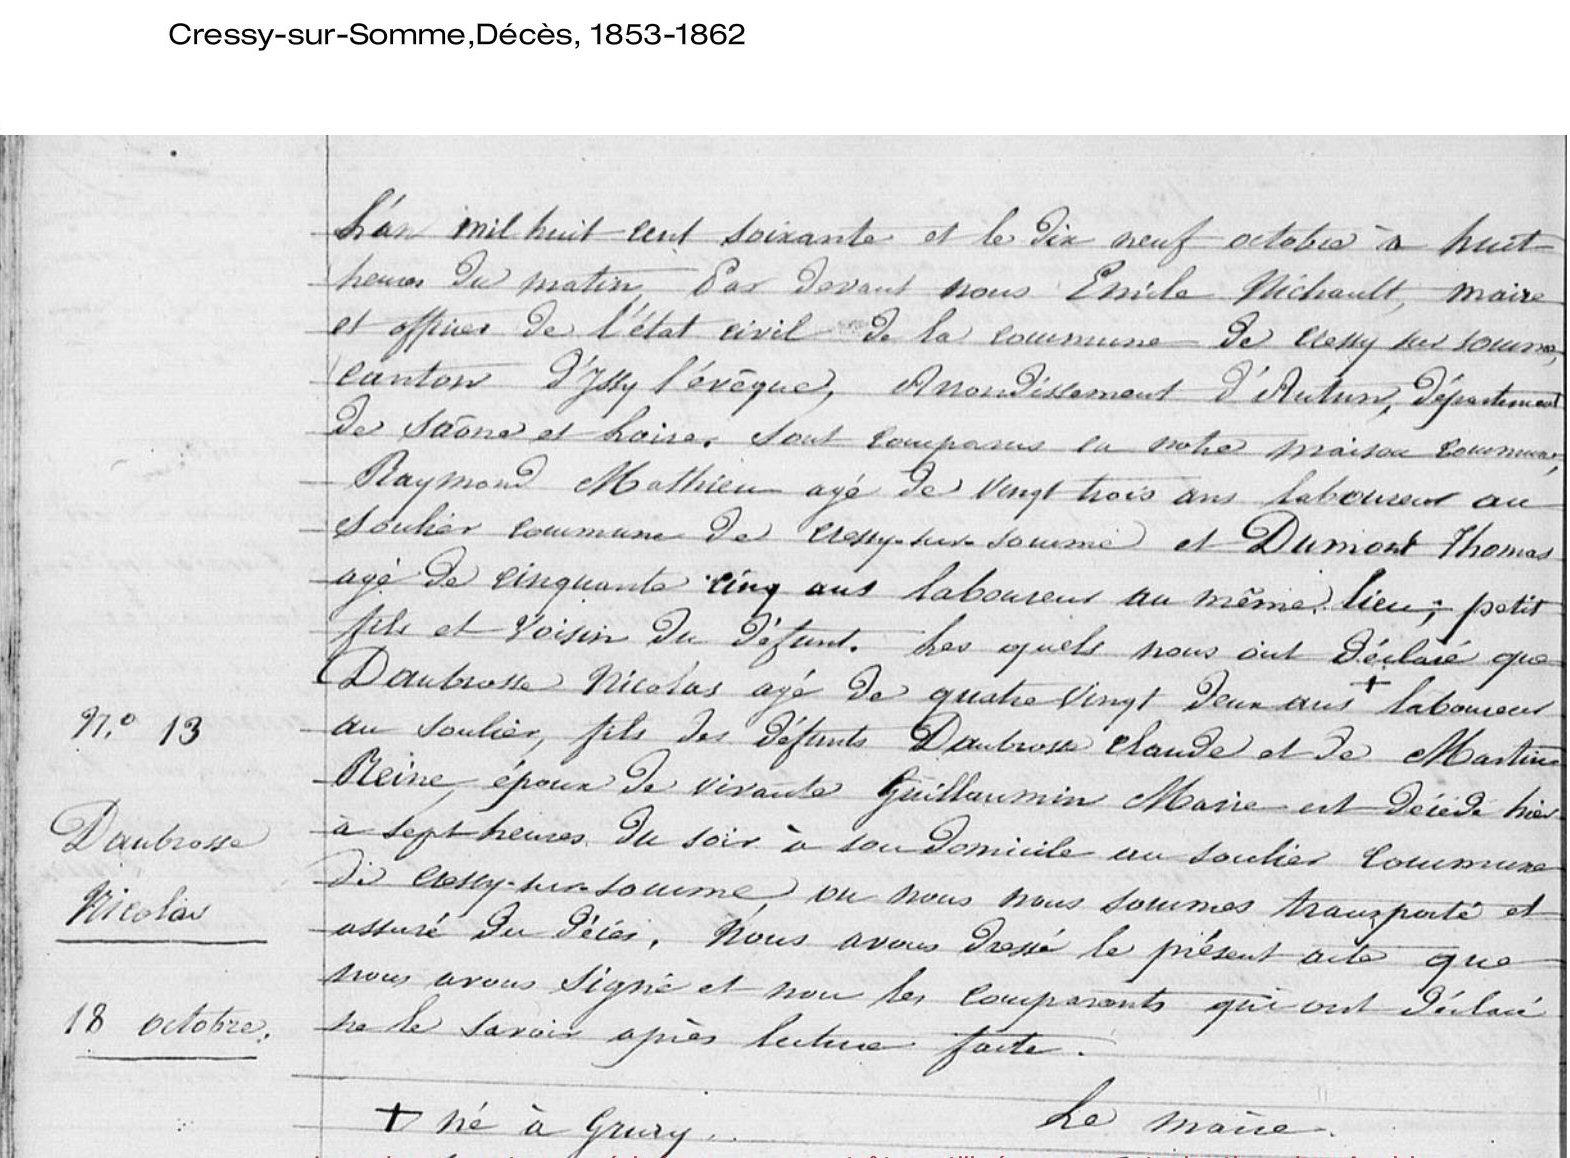 Cressy-sur-Somme,Décès, 1853-1862
L'an mil huit cent soixante et le dix neuf octobre à huit
heures du matin, Par devant nous Emile Michault, maire
et officier de l'état civil de la commune de Cressy sur somme,
canton d'Issy l'évêque, Arrondissement d'Autun, département
de Saône et Loire. Sont comparus en notre maison commune,
Raymond Mathieu agé de vingt trois ans laboureur au
soulier commune de Cressy-sur-somme et Dumont Thomas
agé de cinquante cinq ans laboureur au même lieu; petit
fils et voisin du défunt. Les quels nous ont déclaré que
Daubrosse Nicolas agé de quatre vingt deux ans + laboureur
au soulier, fils des défunts Daubrosse Claude et de Martin
Reine, époux de vivante Guillaumin Marie est décédé hier
à sept heures du soir à son domicile au soulier commune
de Cressy-sur-somme, ou nous nous sommes transporté et
assuré du décès. Nous avons dressé le présent acte que
nous avons signé et non les comparants qui ont déclaré
ne le savoir après lecture faite.
+ né à Grury.
Le maire.
N.º 13
Daubrosse
Nicolas
18 octobre.